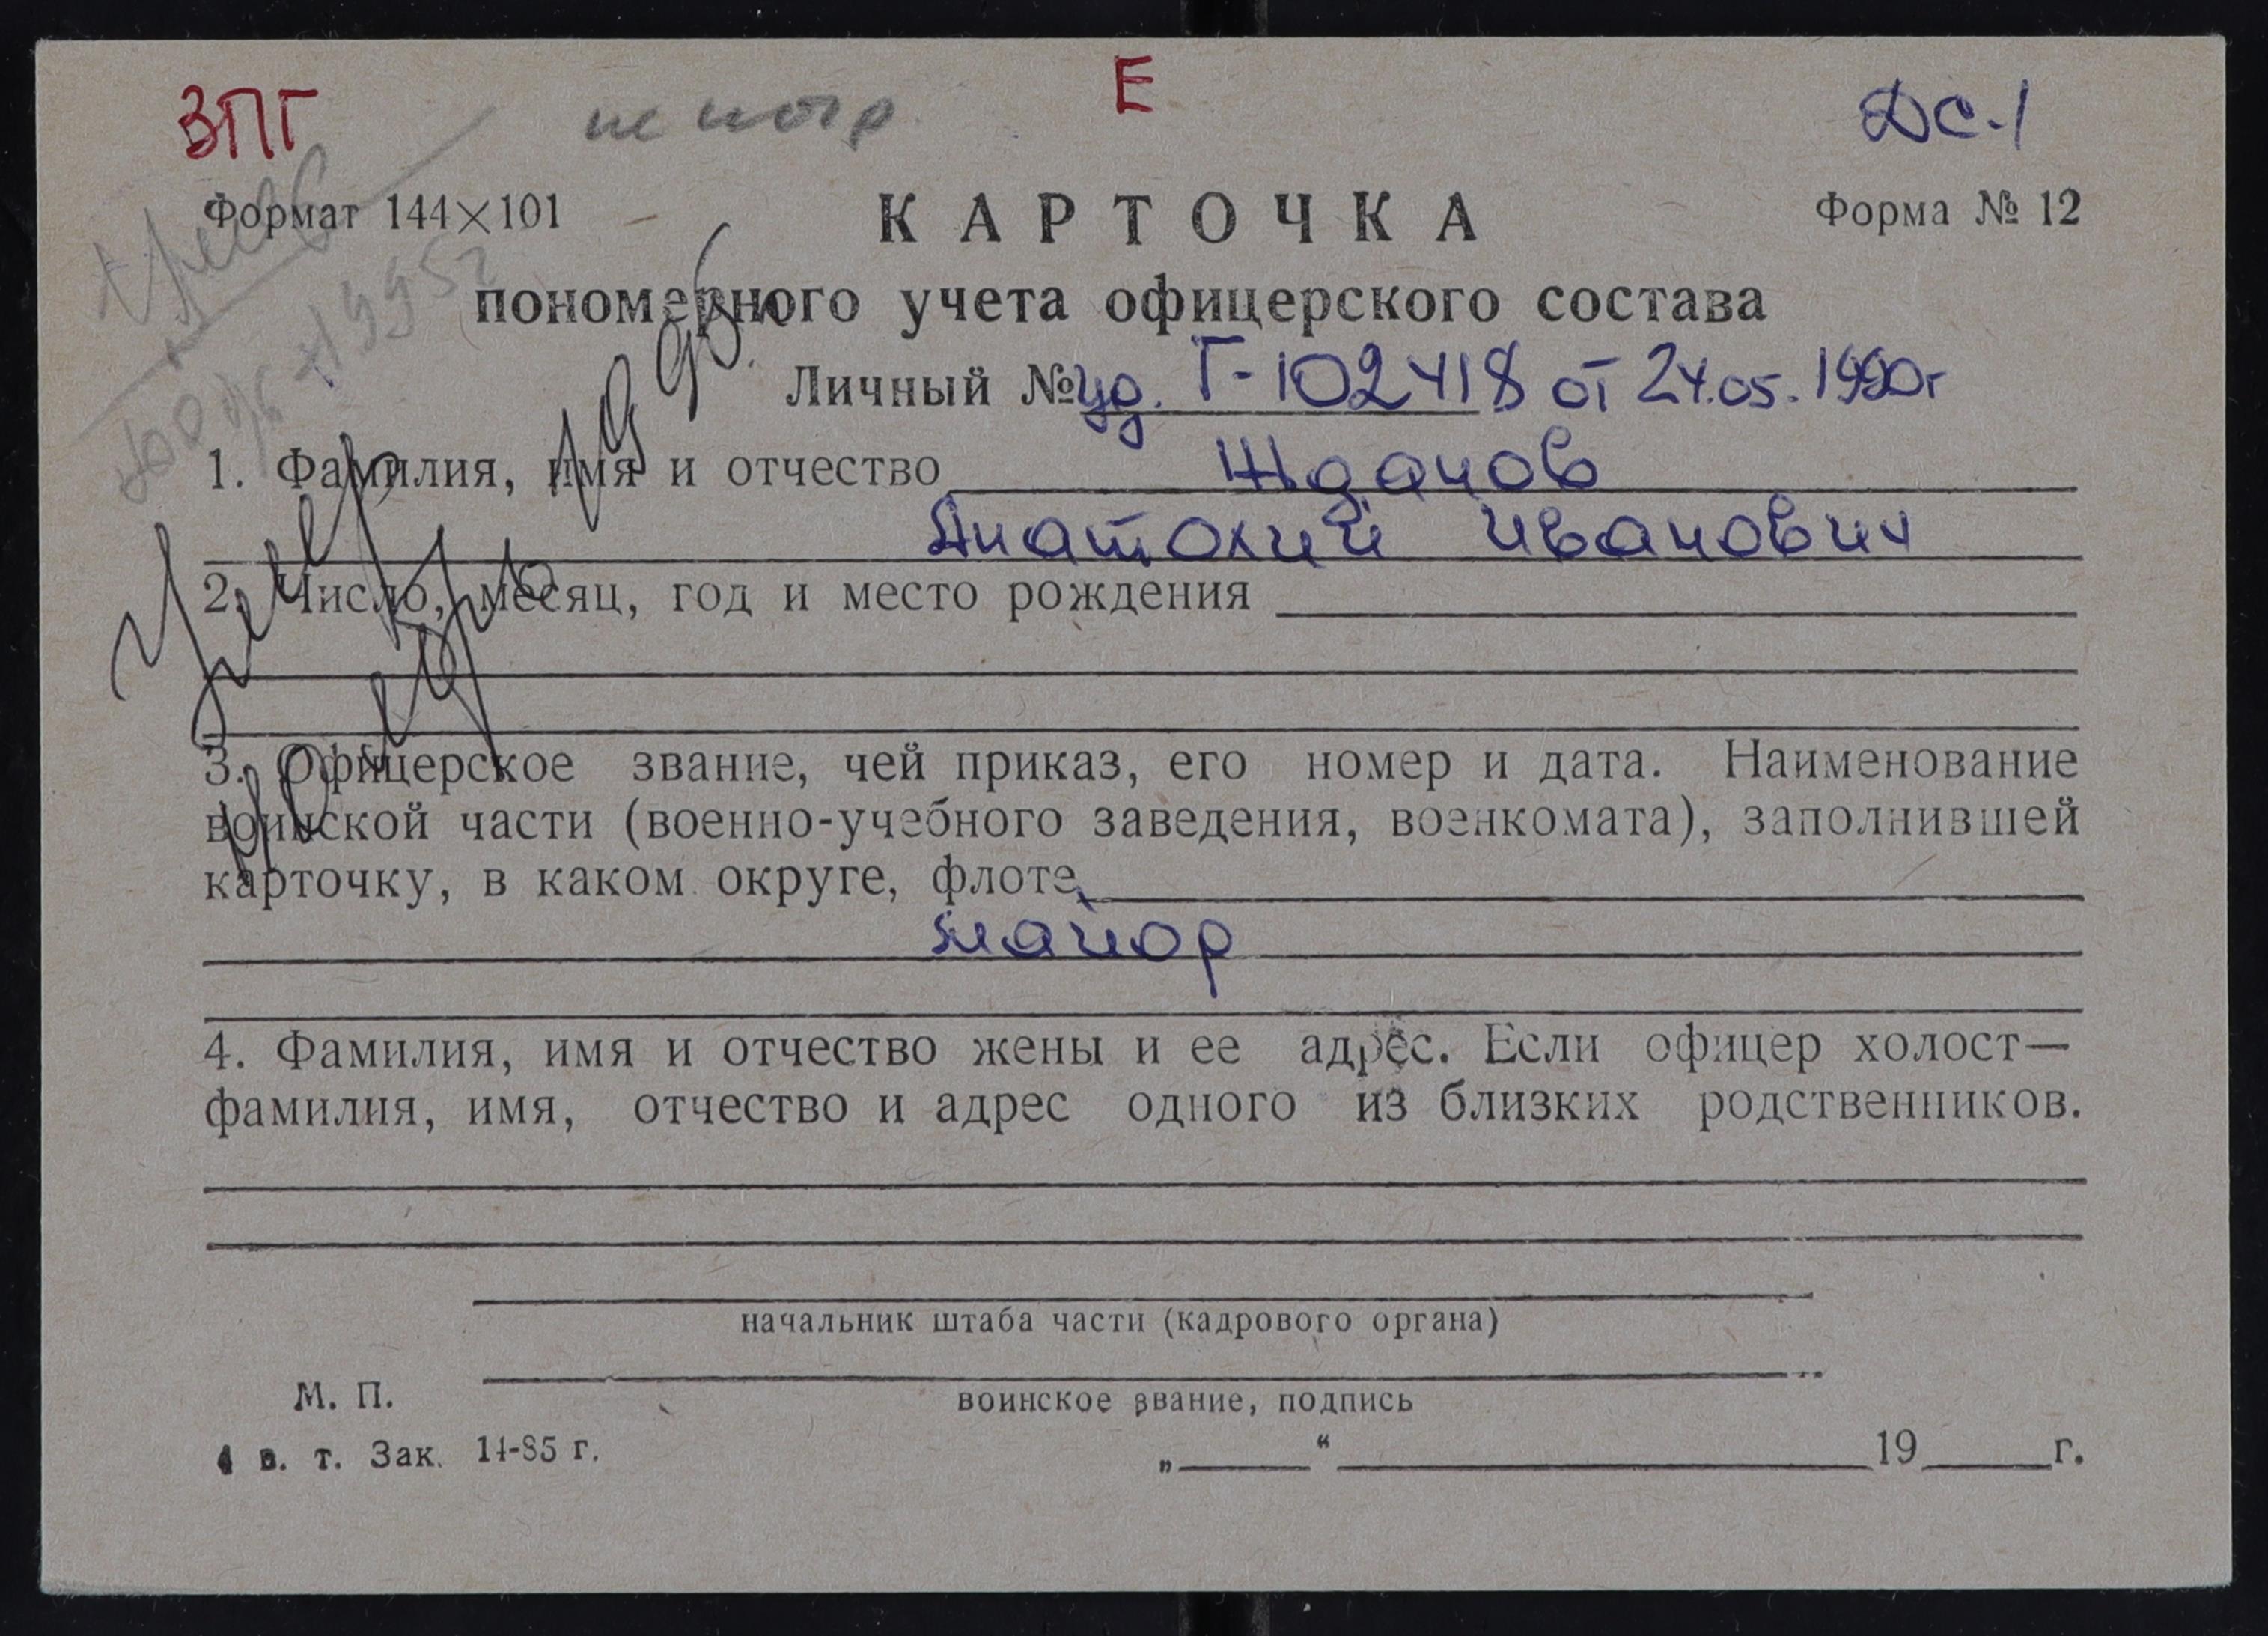 ЗПГ
Е
ДС-1
Формат 144×101
КАРТОЧКА
Форма № 12
пономерного учета офицерского состава
Личный № уд. Г-102418 от 24.05.1990г
1. Фамилия, имя и отчество Жданов
Анатолий Иванович
2. Число, месяц, год и место рождения
3. Офицерское звание, чей приказ, его номер и дата. Наименование
воинской части (военно-учебного заведения, военкомата), заполнившей
карточку, в каком округе, флоте,
майор
4. Фамилия, имя и отчество жены и ее адрес. Если офицер холост—
фамилия, имя, отчество и адрес одного из близких родственников.
начальник штаба части (кадрового органа)
М. П.
воинское звание, подпись
4 в. т. Зак. 14-85 г.
„ “ 19 г.